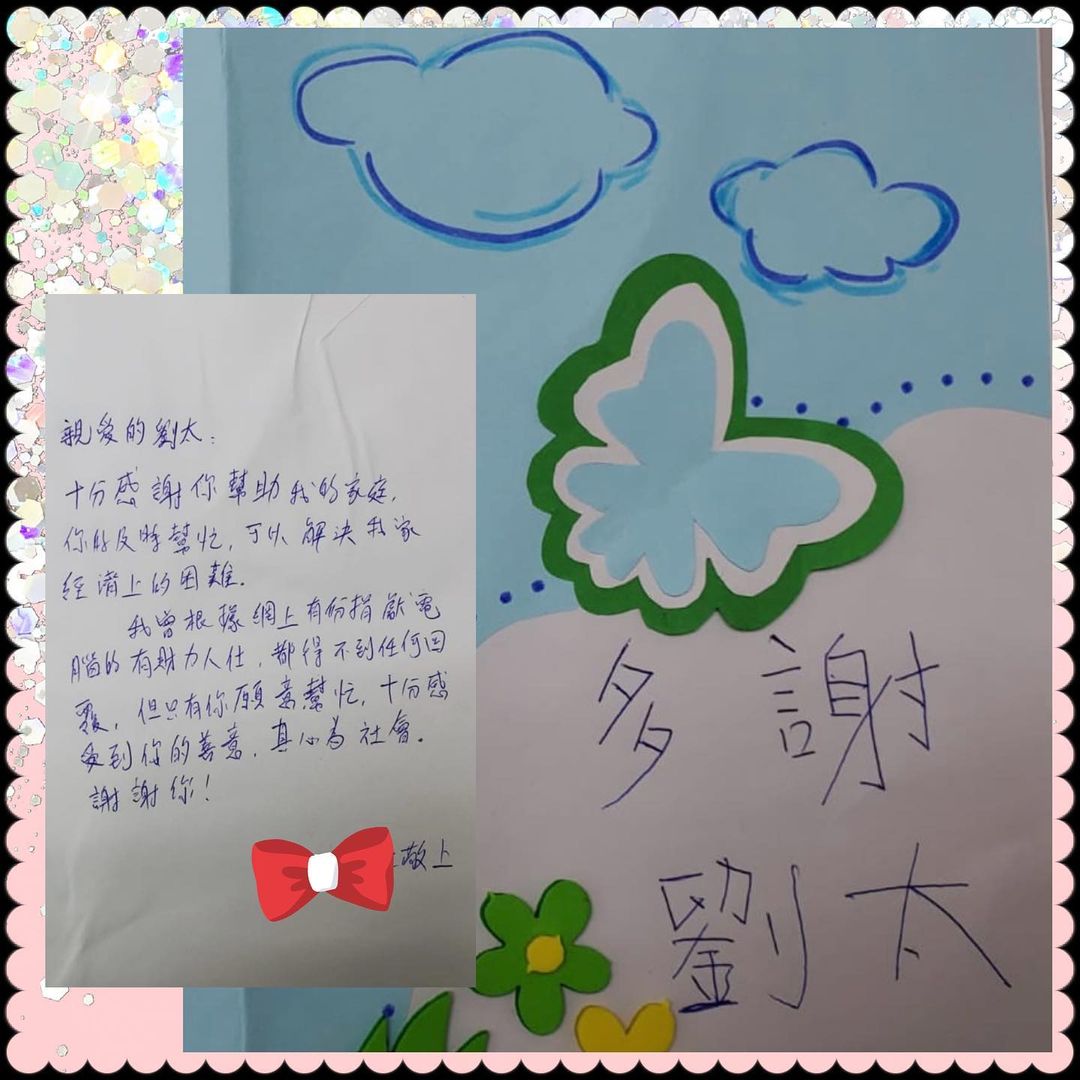 親愛的劉太：
十分感謝你幫助我的家庭，
你的及時幫忙，可以解決我家
經濟上的困難。
我曾根據網上有份捐獻電
腦的有財力人仕，都得不到任何回
覆，但只有你願意幫忙，十分感
受到你的善意，真心為社會。
謝謝你！
敬上
多謝
劉太